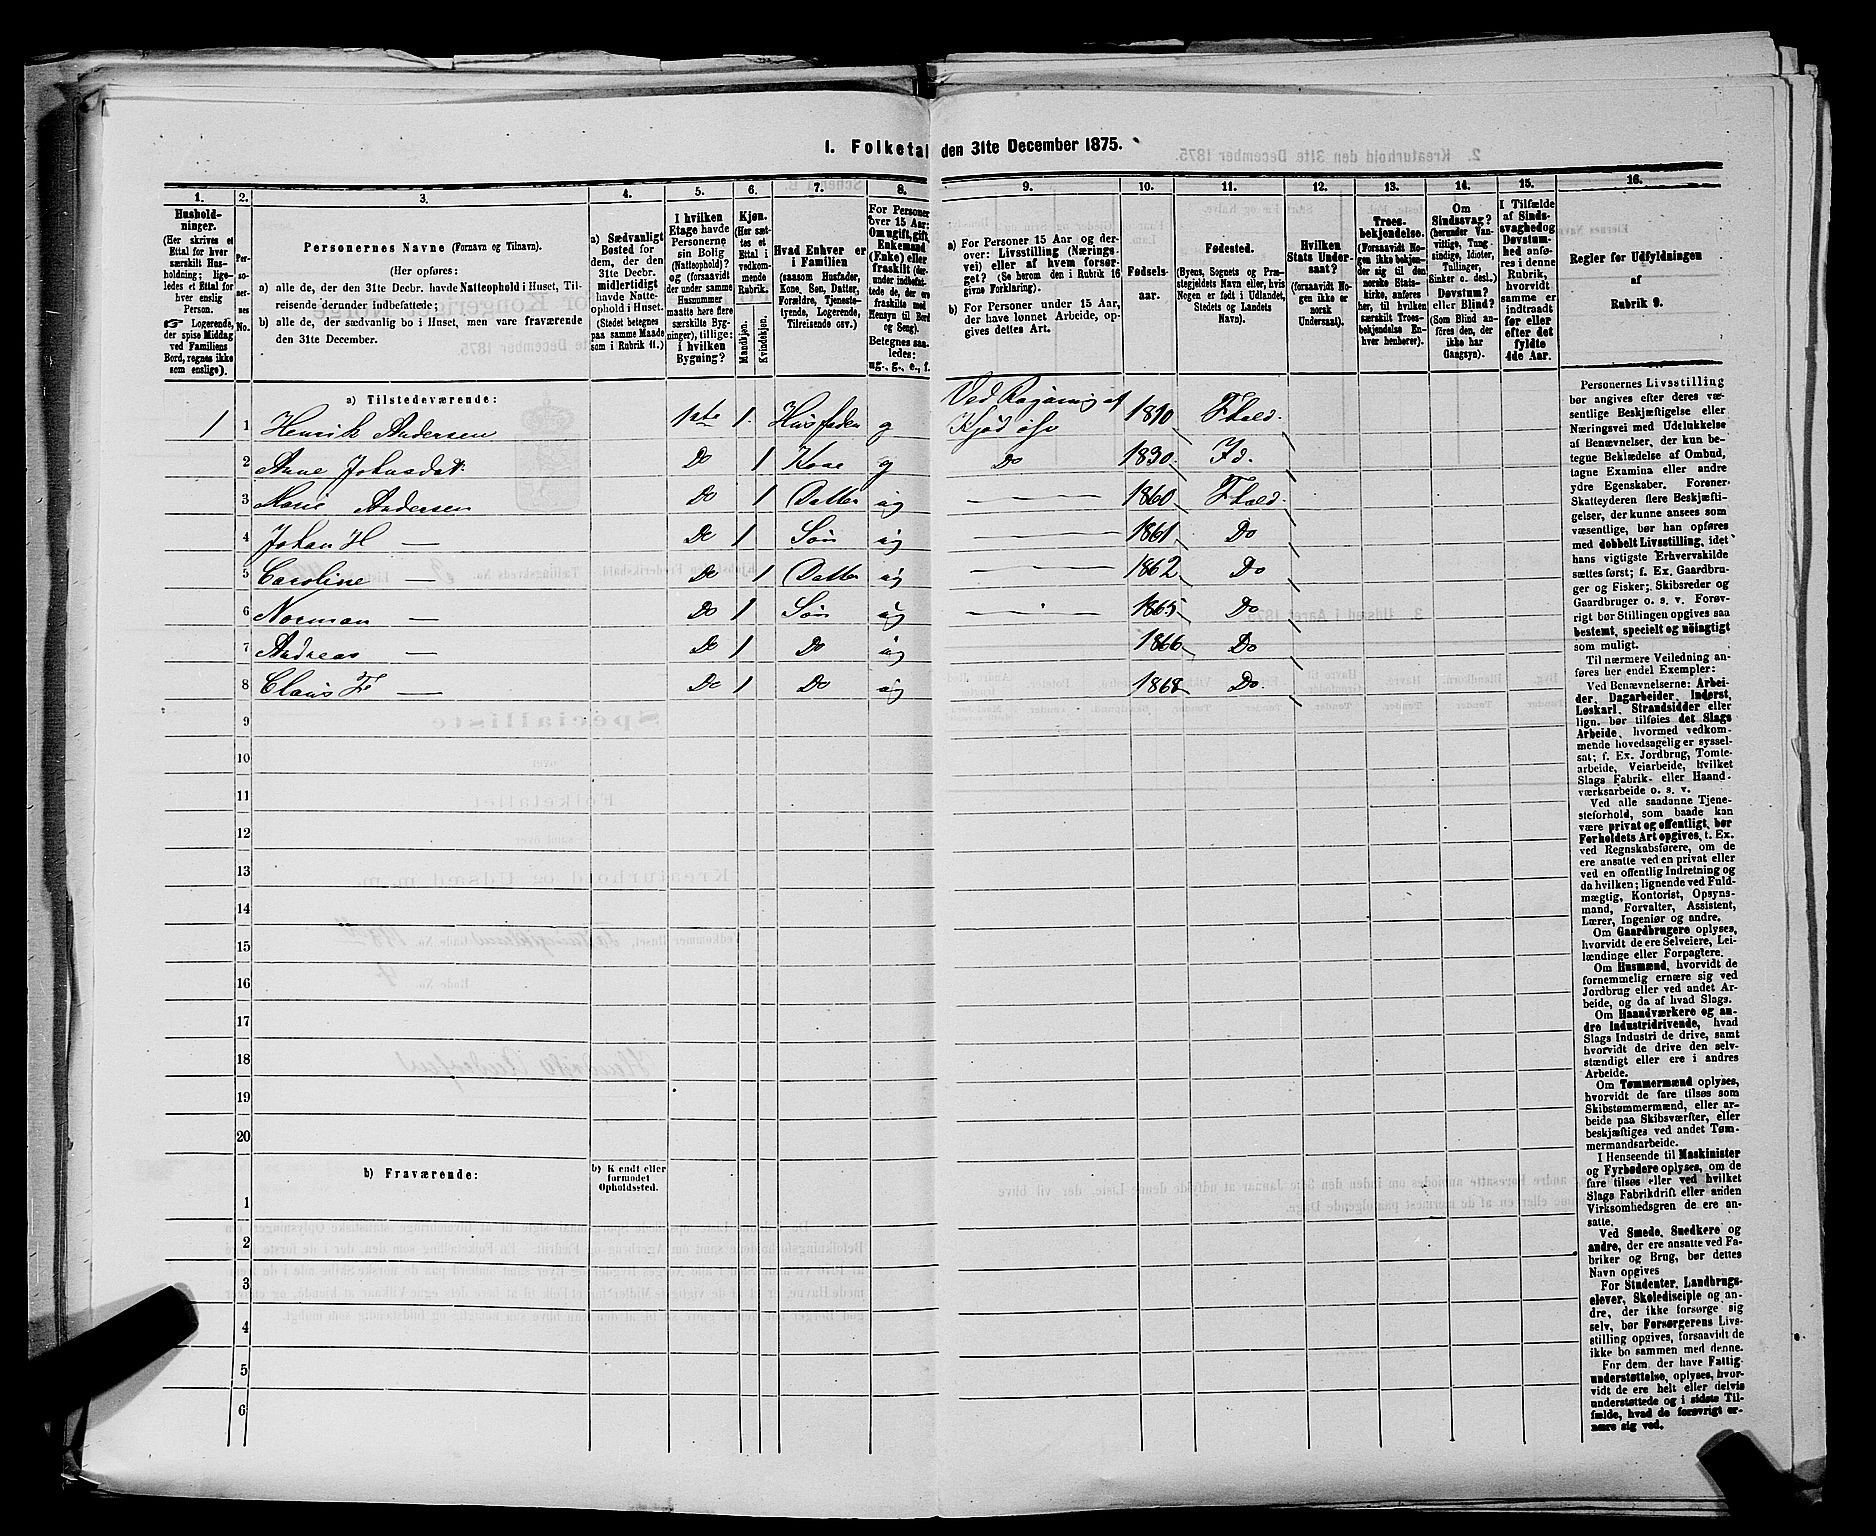 1. Folketal den 31te December 1875.
1. 2. 3. 4. 5. 6. 7. 8. 9. 10. 11. 12. 13. 14. 15. 16.
Hushold-
ninger.
(Her skrives et
Ettal for hver
særskilt Hus-
holdning; lige-
ledes et Ettal for
hver enslig
Person.
☞ Logerende,
der spise Middag
ved Familiens
Bord, regnes ikke
som enslige).
Per-
so-
ner-
nes
No.
Personernes Navne (Fornavn og Tilnavn).
(Her opføres:
a) alle de, der den 31te Decbr. havde Natteophold i Huset, Til-
reisende derunder indbefattede;
b) alle de, der sædvanlig bo i Huset, men vare fraværende
den 31te December.
a) Sædvanligt
Bosted for
dem, der den
31te Decbr.
midlertidigt
havde Natte-
ophold i Huset.
(Stedet betegnes
paa samme Maade
som i Rubrik 11.)
I hvilken
Etage havde
Personerne
sin Bolig
(Natteophold)?
og (forsaavidt
der under samme
Husnummer
maatte høre flere
særskilte Byg-
ninger), tillige:
i hvilken
Bygning?
Kjøn.
(Her sæt-
tes et
Ettal i
vedkom-
mende
Rubrik.
Mandkjøn.
Kvindekjøn.
Hvad Enhver er
i Familien
(saasom Husfader,
Kone, Søn, Datter,
Forældre, Tjeneste-
tyende, Logerende,
Tilreisende osv.)
For Personer
over 15 Aar:
Om ugift, gift,
Enkemand
(Enke) eller
fraskilt (der-
under indbefat-
tede de, der ere
fraskilte med
Hensyn til Bord
og Seng).
Betegnes saa-
ledes:
ug., g., e., f.
a) For Personer 15 Aar og der-
over: Livsstilling (Nærings-
vei) eller af hvem forsør-
get? (Se herom den i Rubrik 16
givne Forklaring).
b) For Personer under 15 Aar,
der have lønnet Arbeide, op-
gives dettes Art.
Fødsels-
aar.
Fødested.
(Byens, Sognets og Præ-
stegjeldets Navn eller, hvis
Nogen er født i Udlandet,
Stedets og Landets
Navn).
Hvilken
Stats Under-
saat?
(forsaavidt No-
gen ikke er
norsk
Undersaat).
Troes-
bekjendelse.
(Forsaavidt No-
gen ikke bekjen-
der sig til den
norske Stats-
kirke, anføres
her, til hvilken
særskilt Troes-
bekjendelse En-
hver henhører).
Om
Sindssvag?
(Herunder Van-
vittige, Tung-
sindige, Idioter,
Tullinger,
Sinker o. desl.)
Døvstum?
eller Blind?
(Som Blind an-
føres den, der
ikke har
Gangsyn).
I Tilfælde
af Sinds-
svaghed og
Døvstum-
hed anfø-
res i denne
Rubrik,
hvorvidt
samme er
indtraadt
før eller
efter det
fyldte
4de Aar.
Regler for Udfyldningen
af
Rubrik 9.
a) Tilstedeværende:
1 1 Henrik Andersen 1ste 1. Husfader g Kjød 1810 Fhald.
2 Anne Do 1 Kone g Do 1830 Fd.
3 Marie Andersen Do 1 Datter ug — 1860 Fhald.
4 Johan H — Do 1 Søn ug — 1861 Do
5 Caroline — Do 1 Datter ug — 1862 Do
6 Norman — Do 1 Søn ug — 1865 Do
7 Andreas — Do 1 Do ug 1866 Do
8 Claus F. — Do 1 Do ug 1868 Do.
9
10
11
12
13
14
15
16
17
18
19
20
b) Fraværende:
b) Kjendt eller
formodet
Opholdssted.
1
2
3
4
5
6
Personernes Livsstilling
bør angives efter deres væ-
sentlige Beskjæftigelse eller
Næringsvei med Udelukkelse
af Benævnelser, der kun be-
tegne Beklædelse af Ombud,
tagne Examina eller andre
ydre Egenskaber. Forener
Skatteyderen flere Beskjæfti-
gelser, der kunne ansees som
væsentlige, bør han opføres
med dobbelt Livsstilling, idet
hans vigtigste Erhvervskilde
sættes først; f. Ex. Gaardbru-
ger og Fisker; Skibsreder og
Gaardbruger o. s. v. Forøv-
rigt bør Stillingen opgives saa
bestemt, specielt og nöiagtigt
som muligt.
Til nærmere Veiledning an-
føres her endel Exempler:
Ved Benævnelserne: Arbei-
der, Dagarbeider, Inderst,
Løskarl, Strandsidder eller
lign. bør tilføies det Slags
Arbeide, hvormed vedkom-
mende hovedsagelig er syssel-
sat; f. Ex. Jordbrug, Tomte-
arbeide, Veiarbeide, hvilket
Slags Fabrik- eller Haand-
værksarbeide o. s. v.
Ved alle saadanne Tjene-
steforhold, som baade kan
være privat og offentligt, bør
Forholdets Art opgives, t. Ex.
ved Regnskabsførere, om de
ere ansatte ved en privat eller
ved en offentlig Indretning og
da hvilken; lignende ved Fuld-
mægtig, Kontorist, Opsyns-
mand, Forvalter, Assistent,
Lærer, Ingeniør og andre.
Om Gaardbrugere oplyses,
hvorvidt de ere Selveiere, Lei-
lændinge eller Forpagtere.
Om Husmænd, hvorvidt de
fornemmelig ernære sig ved
Jordbrug eller ved andet Ar-
beide, og da af hvad Slags.
Om Haandværkere og an-
dre Industridrivende, hvad
Slags Industri de drive, samt
hvorvidt de drive den selv-
stændigt eller ere i andres
Arbeide.
Om Tømmermænd oplyses,
hvorvidt de fare tilsøs som
Skibstømmermænd, eller ar-
beide paa Skibsværfter, eller
beskjæftiges ved andet Tøm-
mermandsarbeide.
I Henseende til Maskinister
og Fyrbødere oplyses, om de
fare tilsøs eller ved hvilket
Slags Fabrikdrift eller anden
Virksomhedsgren de ere an-
satte.
Ved Smede, Snedkere og
andre, der ere ansatte ved Fa-
briker og Brug, bør dettes
Navn opgives
For Studenter, Landbrugs-
elever, Skoledisciple og an-
dre, der ikke forsørge sig
selv, bør Forsørgerens Livs-
stilling opgives, forsaavidt de
ikke bo sammen med denne.
For dem, der have Fattig-
understøttelse, oplyses, hvor-
vidt de ere helt eller delvis
understøttede og i sidste Til-
fælde, hvad de forøvrigt er-
nære sig ved.